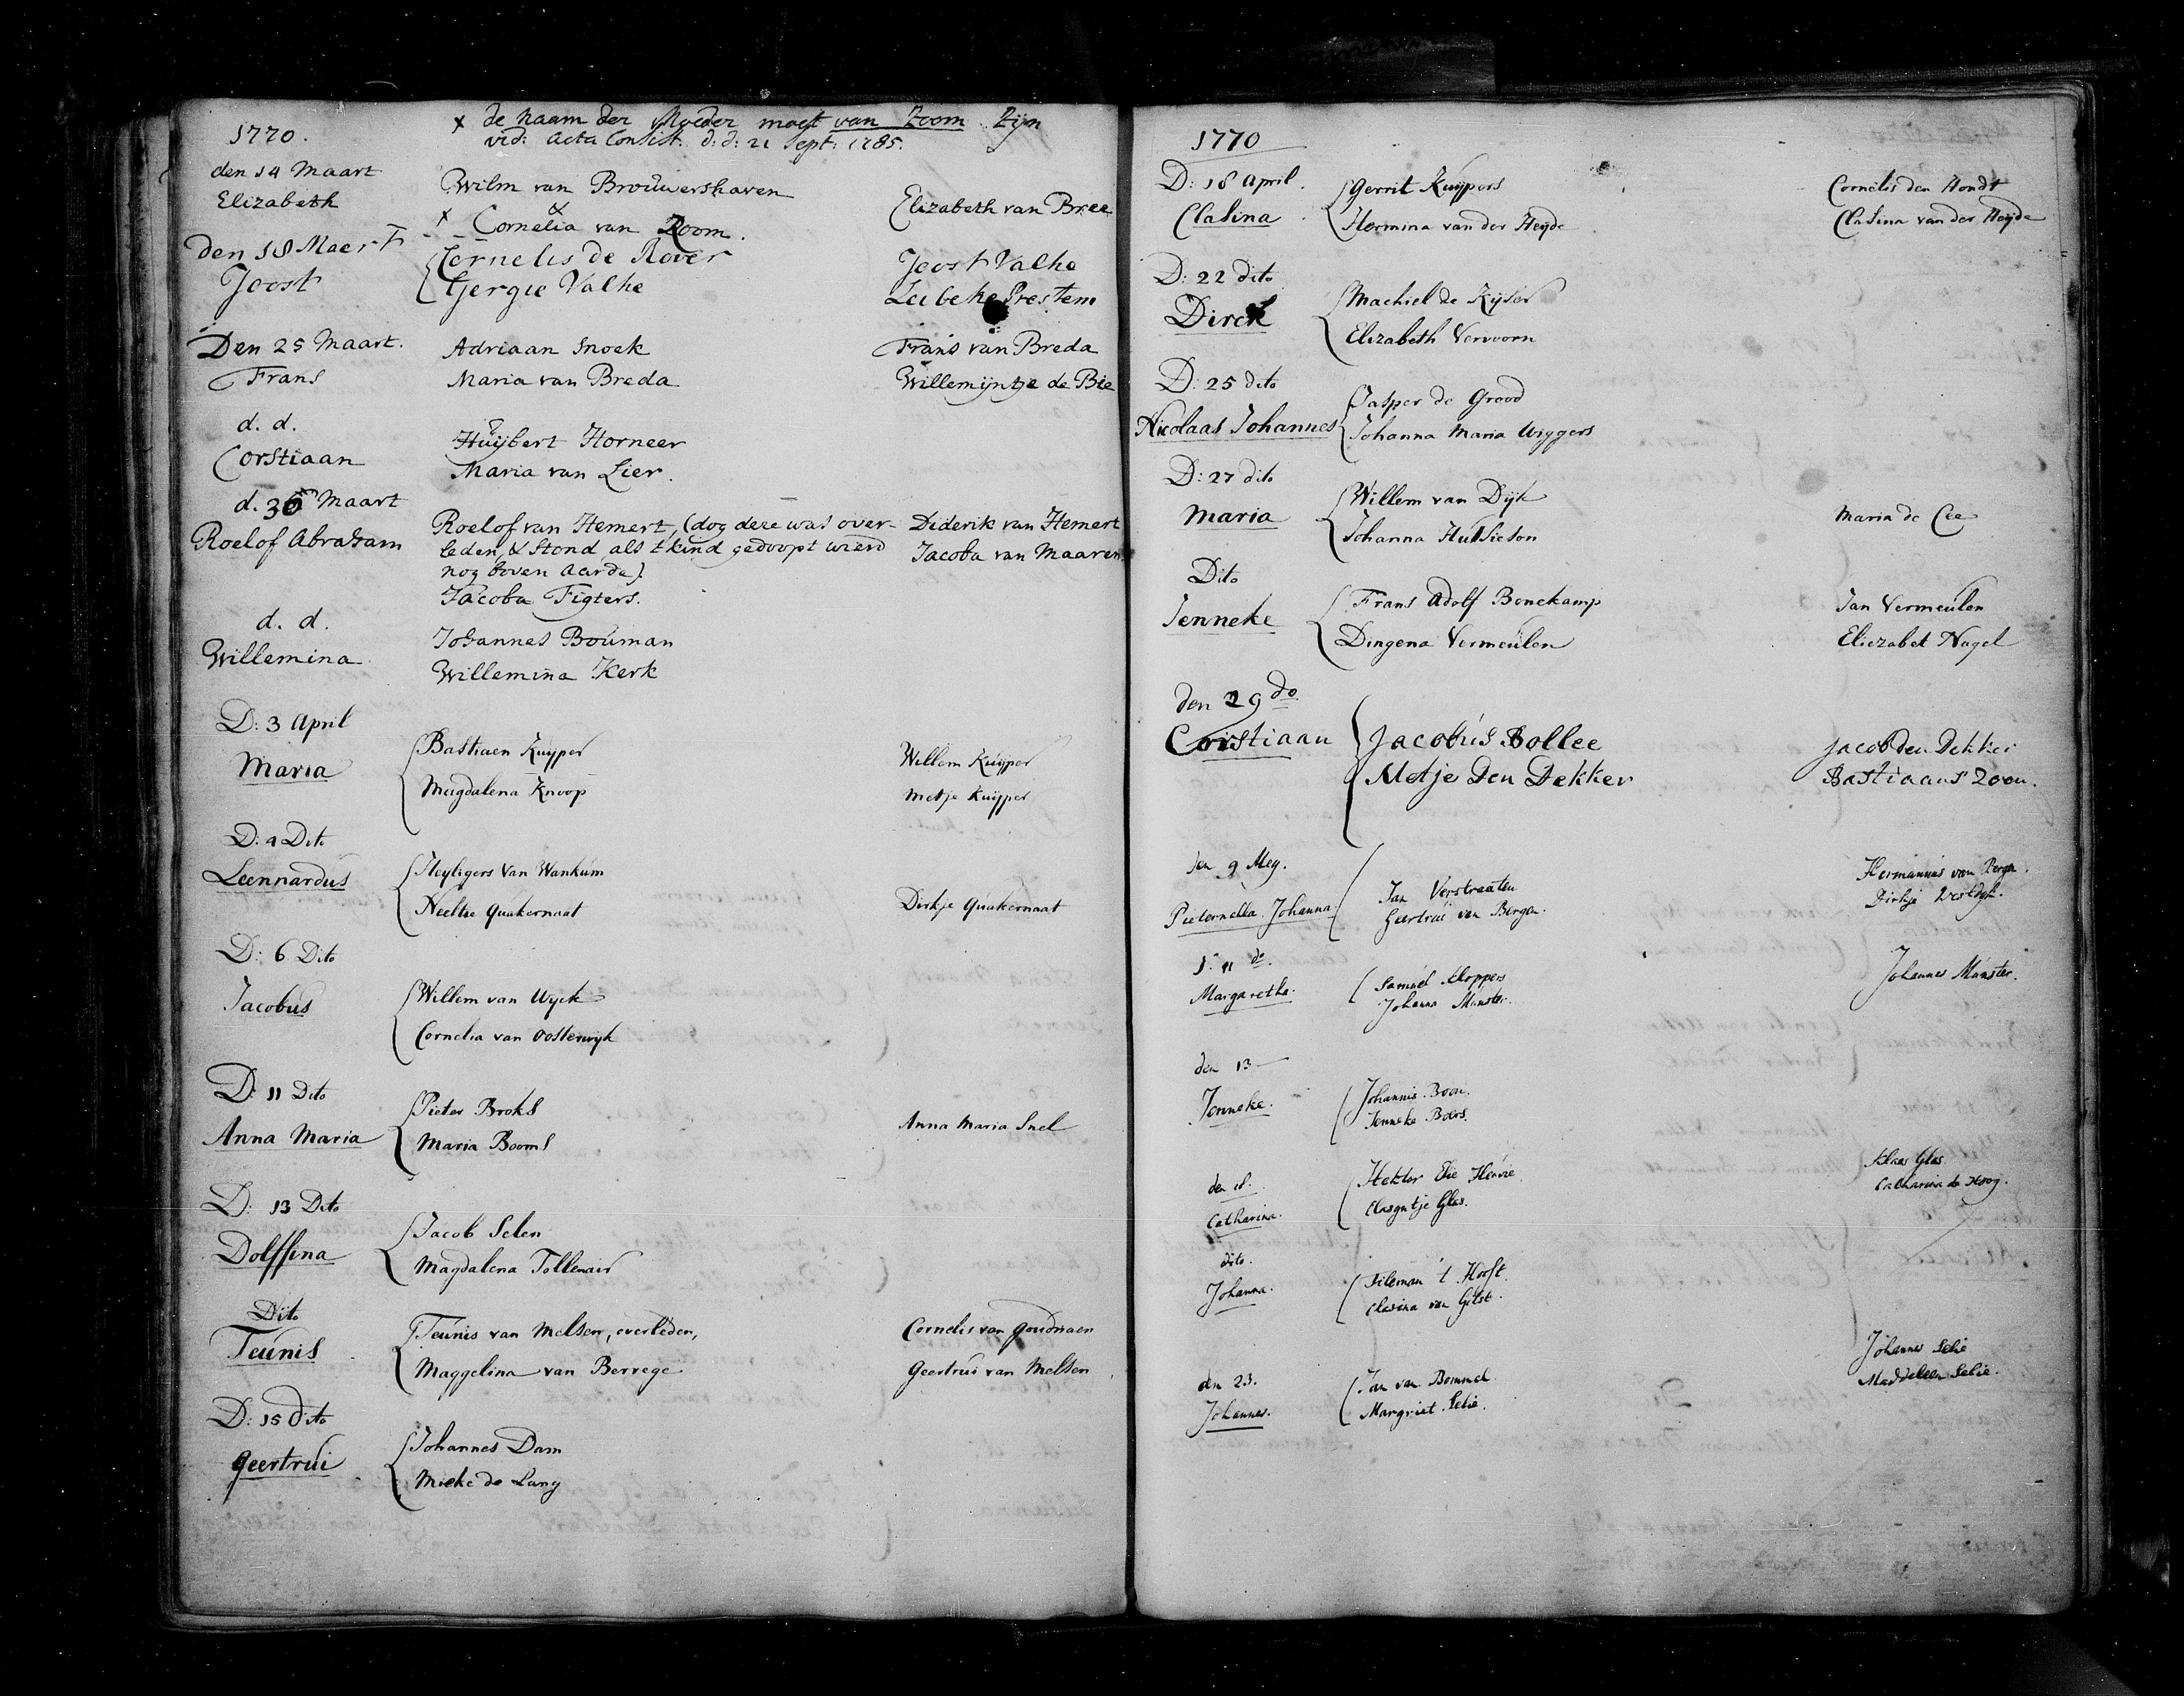 1770.
x de naam der Moeder moest van Zoom zijn
vid: Acta Consist: d: d: 21 Sept: 1785.
den 14 Maart
Elizabeth
Wilm van Brouwershaven
&
x Cornelia van Room.
Elizabeth van Bree
den 18 Maert
Joost
Cornelis de Rover
Gergie Valke
Joost Valke
Leibeke Prestem
Den 25 Maart.
Frans
Adriaan Snoek
Maria van Breda
Frans van Breda
Willemijntje de Bie
d. d.
Corstiaan
Huijbert Horneer
Maria van Lier.
d. 30 Maart
Roelof Abraham
Roelof van Hemert, (dog deze was over-
leden, & stond, als 't kind gedoopt wierd
nog boven aarde).
Jacoba Figters.
Diderik van Hemert
Jacoba van Maaren.
d. d.
Willemina
Johannes Bouman
Willemina Kerk
D: 3 April
Maria
Bastiaen Kuyper
Magdalena Knoop
Willem Kuijper
Metje Kuijper
D: 4 Dito
Leennardus
Heyligers van Wankum
Neeltie Quakernaat
Dirkje Quakernaat
D: 6 Dito
Jacobus
Willem van Wyck
Cornelia van Oosterwyk
D: 11 Dito
Anna Maria
Pieter Broks
Maria Booms
Anna Maria Snel
D: 13 Dito
Dolffina
Jacob Selen
Magdalena Tollenair
Dito
Teunis
Teunis van Melsen, overleden,
Maggelina van Berrege
Cornelis van Goudriaen
Geertrui van Melsen
D: 15 dito
Geertrui
Johannes Dam
Mieke de Lang
1770
D: 18 April.
Clasina
Gerrit Kuypers
Hermina van der Heyde
Cornelis den Hondt
Clasina van der Heyde
D: 22 dito
Dirck
Machiel de Kijser
Elizabeth Vervoorn
D: 25 dito
Nicolaas Johannes
Casper de Grood
Johanna Maria Wiggers
D: 27 dito
Maria
Willem van Dijk
Johanna Hulsieson
Maria de Cee
Dito
Jenneke
Frans Adolf Bonekamp
Dingena Vermeulen
Jan Vermeulen
Eliezabet Nagel
den 29 do
Corstiaan
Jacobus Bollee
Metje Den Dekker
Jacob den Dekker
Bastiaans Zoon.
den 9 Mey.
Pieternella. Johanna.
Jan Verstraaten
Geertrui van Bergen.
Hermanus van Bergen.
Dirkje Westdyk.
d: 11 do.
Margaretha.
Samuel Kloppers
Johanna Munster.
Johannes Munster.
den 13
Jenneke.
Johannis. Boon.
Jenneke Boers.
den 18.
Catharina.
Hektor Elie Henvie
Clasyntje Glas.
Klaas Glas
Catharina de Hoog.
dito.
Johanna.
Tileman 't Hooft.
Clasina van Gilst.
den 23.
Johannes.
Jan van Bommel
Margriet. Selie.
Johannes Selie
Maddeleen Selie.